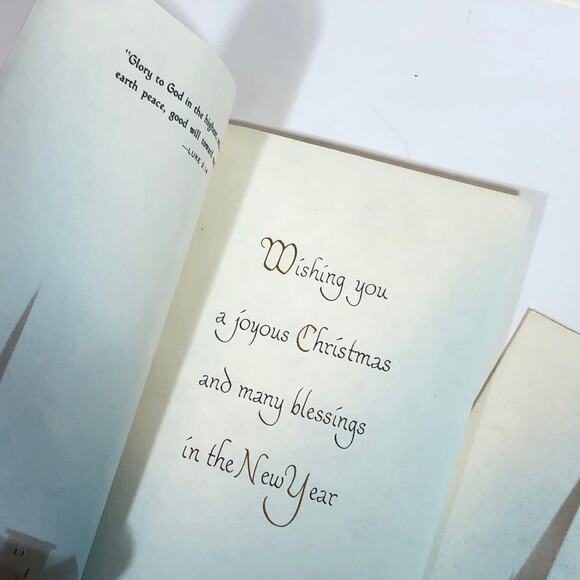 "Glory to God in the highest,
earth peace, good will toward
—LUKE 2:14
Wishing you
a joyous Christmas
and many blessings
in the New Year